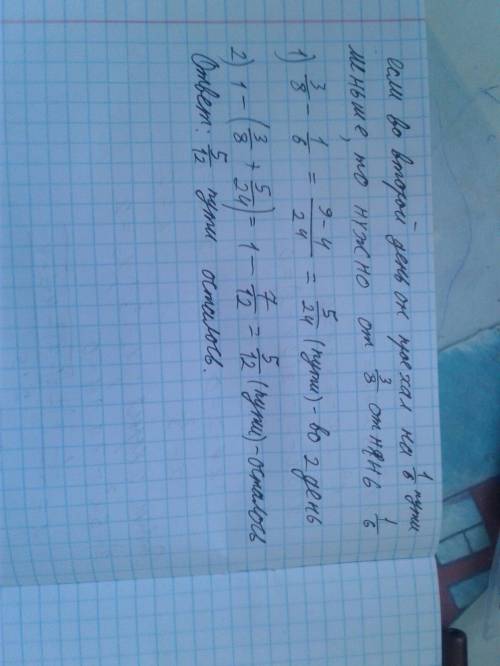 если во второй день он проехал на 1/6 пути
меньше, то нужно от 3/8 отнять 1/6
1) 3/8 - 1/6 = (9-4)/24 = 5/24 (пути) - во 2 день
2) 1 - (3/8 + 5/24) = 1 - 7/12 = 5/12 (пути) - осталось
Ответ: 5/12 пути осталось.